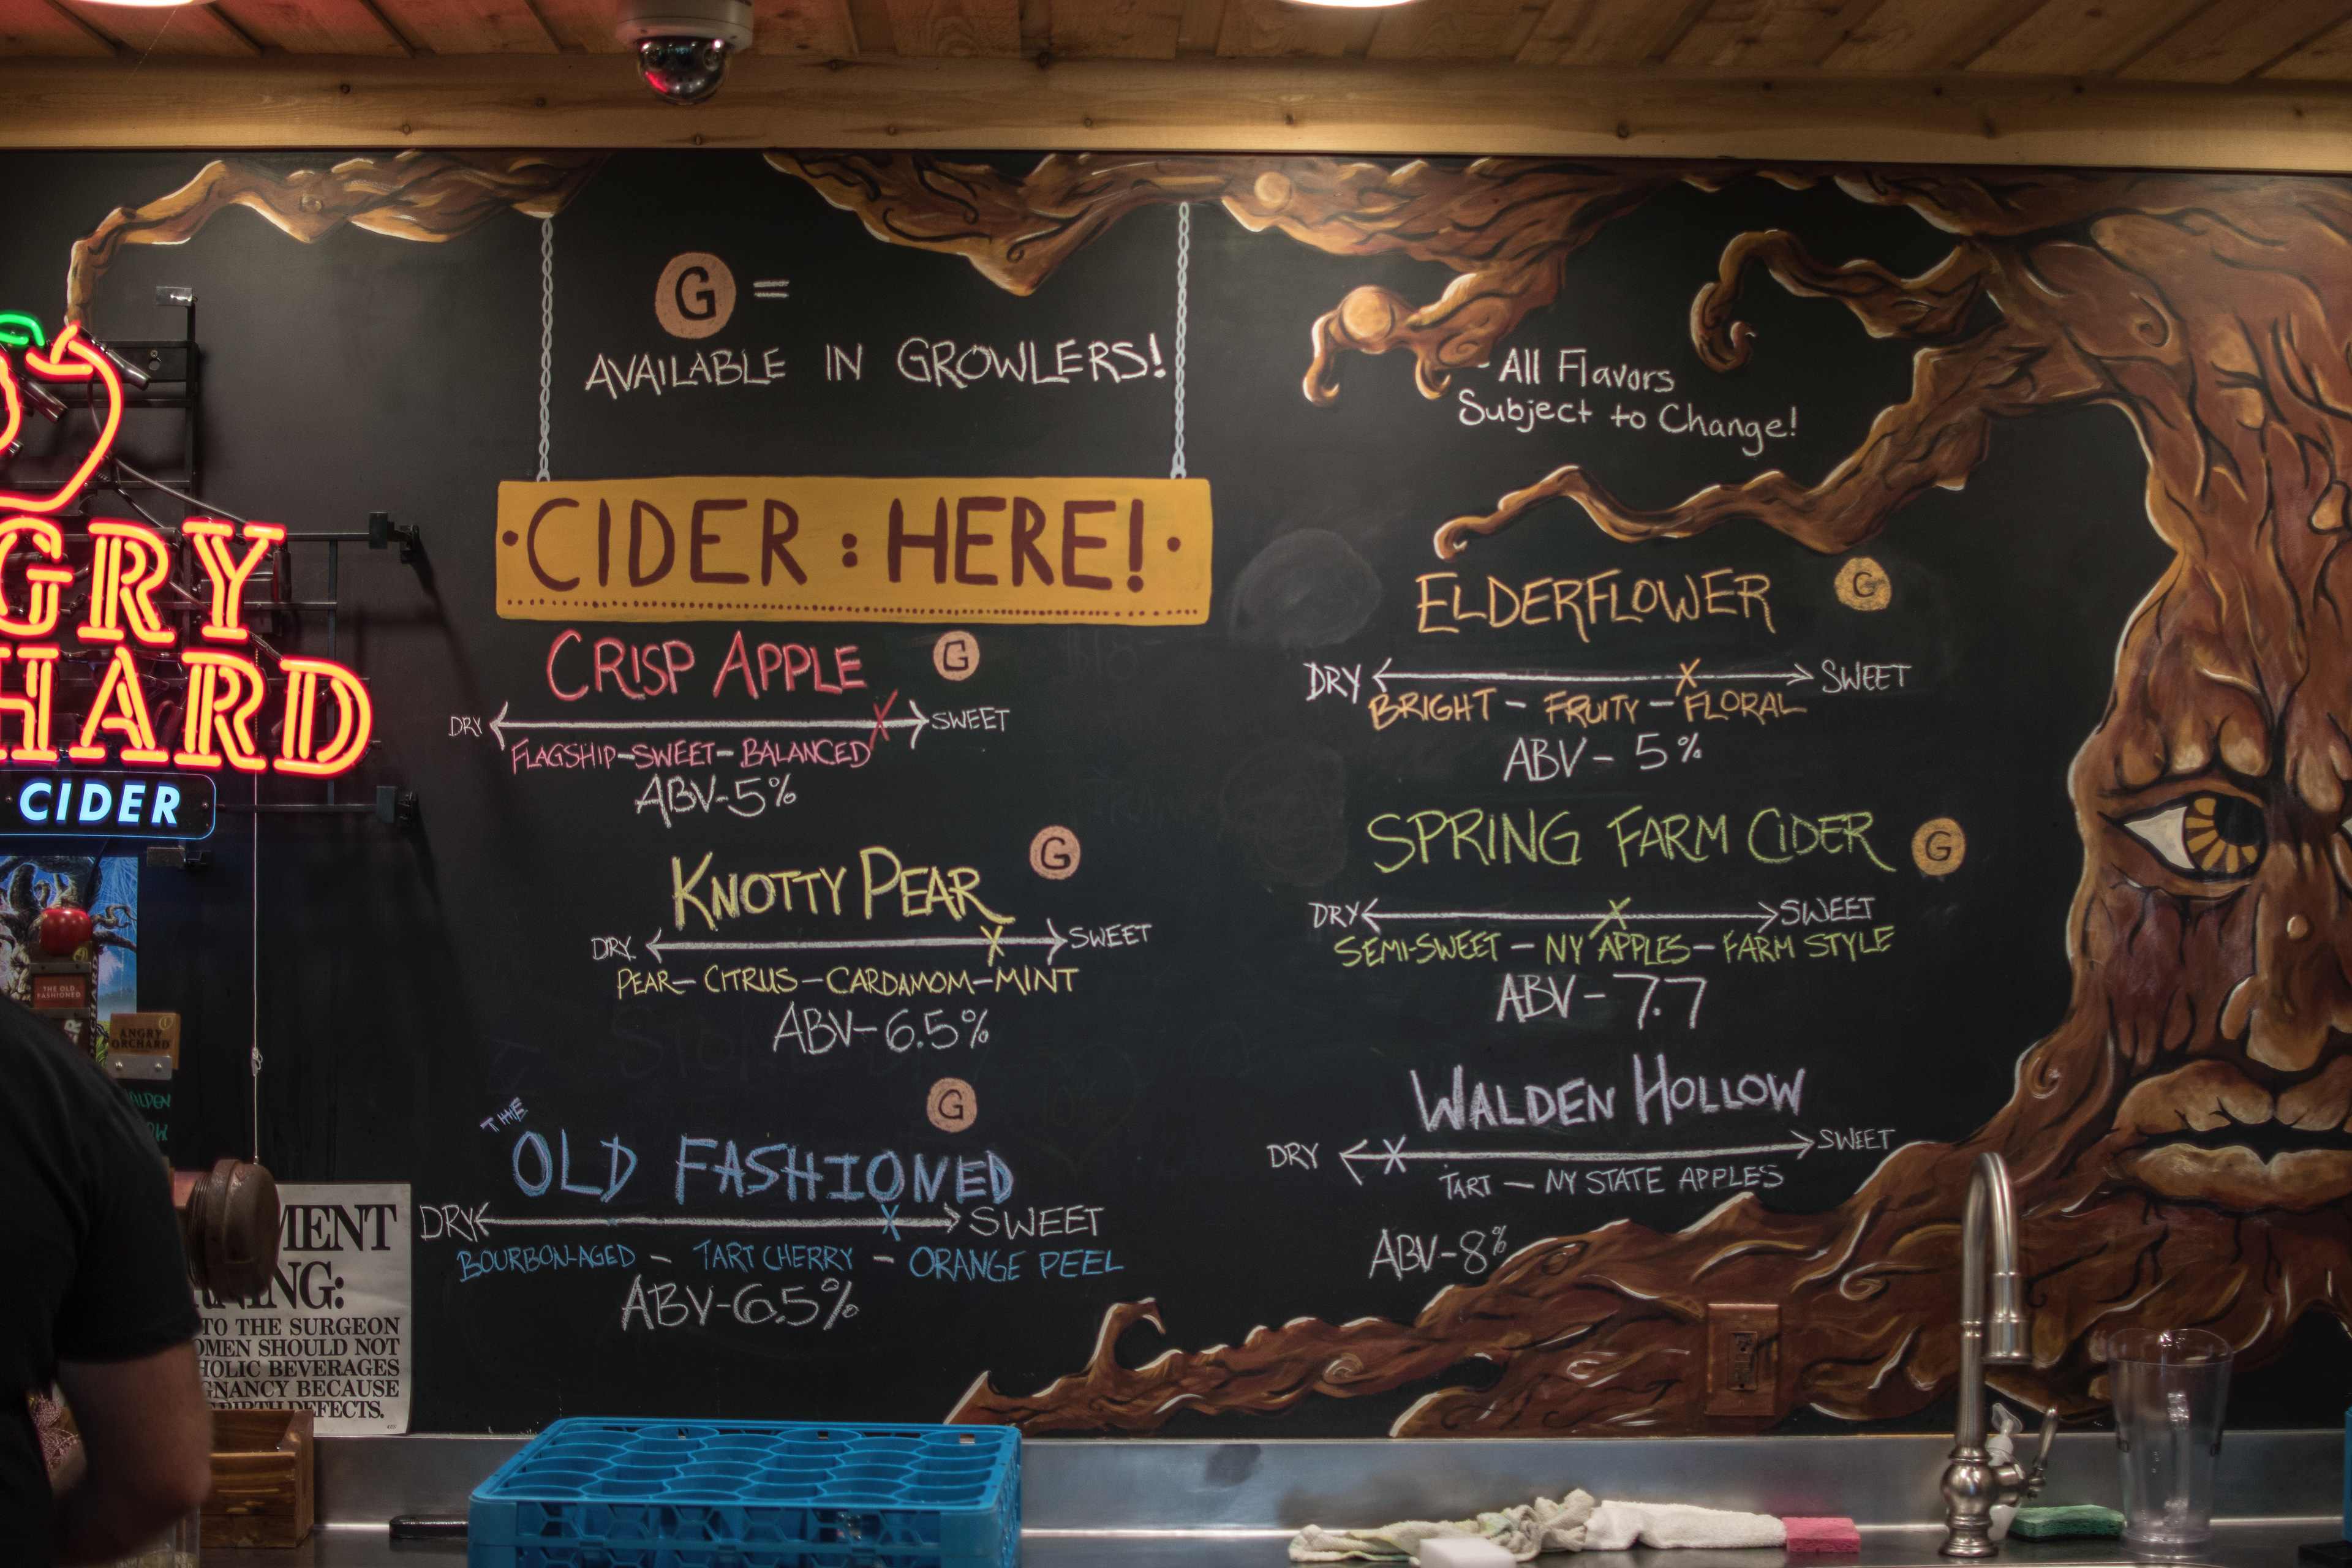 G =
AVAILABLE IN GROWLERS!
- All Flavors
Subject to Change!
CIDER : HERE!
CRISP APPLE G
DRY SWEET
FLAGSHIP-SWEET-BALANCED
ABV-5%
KNOTTY PEAR G
DRY. SWEET
PEAR-CITRUS-CARDAMOM-MINT
ABV-6.5%
G
THE
OLD FASHIONED
DRY SWEET
BOURBON-AGED - TART CHERRY - ORANGE PEEL
ABV-6.5%
ELDERFLOWER G
DRY SWEET
BRIGHT - FRUITY - FLORAL
ABV - 5%
SPRING FARM CIDER G
DRY SWEET
SEMI-SWEET - NY APPLES - FARM STYLE
ABV - 7.7
WALDEN HOLLOW
DRY SWEET
TART - NY STATE APPLES
ABV-8%
GRY
HARD
CIDER
THE OLD
FASHIONED
ANGRY
ORCHARD
MENT
NING:
TO THE SURGEON
OMEN SHOULD NOT
HOLIC BEVERAGES
GNANCY BECAUSE
BIRTH DEFECTS.